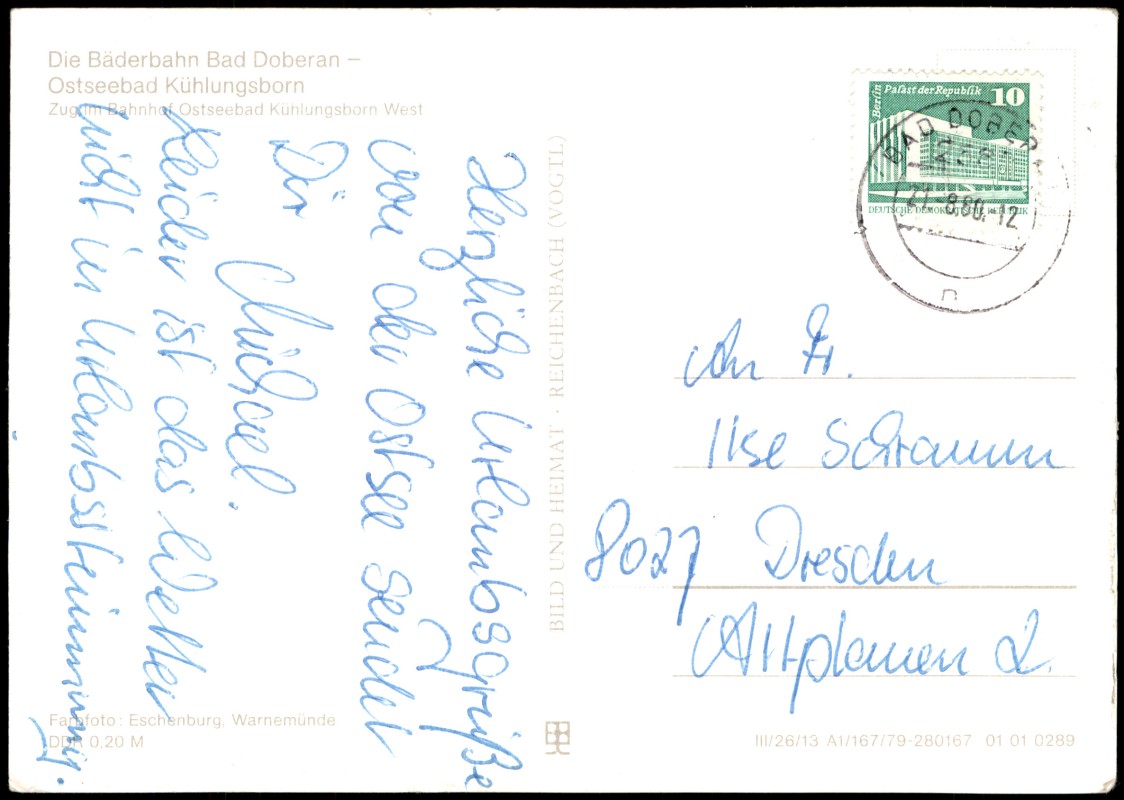 Die Bäderbahn Bad Doberan –
Ostseebad Kühlungsborn
Zug im Bahnhof Ostseebad Kühlungsborn West
Herzliche Urlaubsgrüße
von der Ostsee sendet
Dir
Michael.
Leider ist das Wetter
nicht in Urlaubsstimmung.
Farbfoto: Eschenburg, Warnemünde
DDR 0,20 M
BILD UND HEIMAT · REICHENBACH (VOGTL)
Berlin
Palast der Republik 10
DEUTSCHE DEMOKRATISCHE REPUBLIK
BAD DOBERAN
21.-8.80.-12
n
An Fr.
Ilse Schramm
8027 Dresden
Altplauen 2.
III/26/13 A1/167/79-280167 01 01 0289